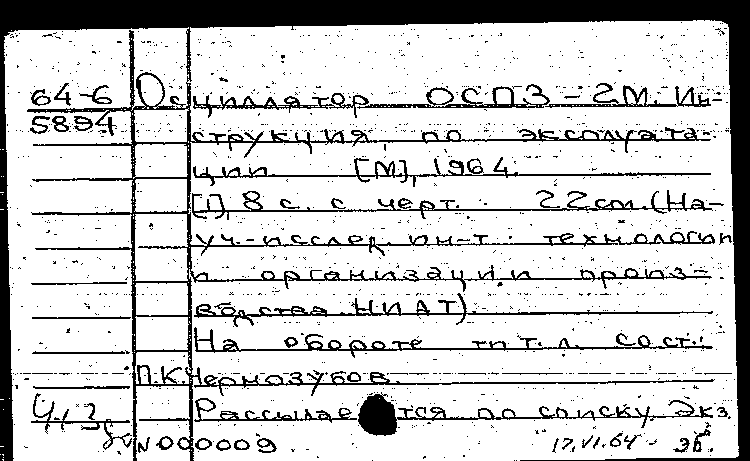 64-6 Осциллятор ОСПЗ-2М. Ин-
5894 струкция, по эксплуата-
ции [М], 1964.
[1], 8 с. с черт. 22 см. (На-
уч.-исслед. ин-т. технологии
и организации произ-
водства НИАТ).
На обороте тит. л. сост.:
П.К. Чермозубов.
Рассылается по списку. Экз
N 000009
17.VI.64 - эб.